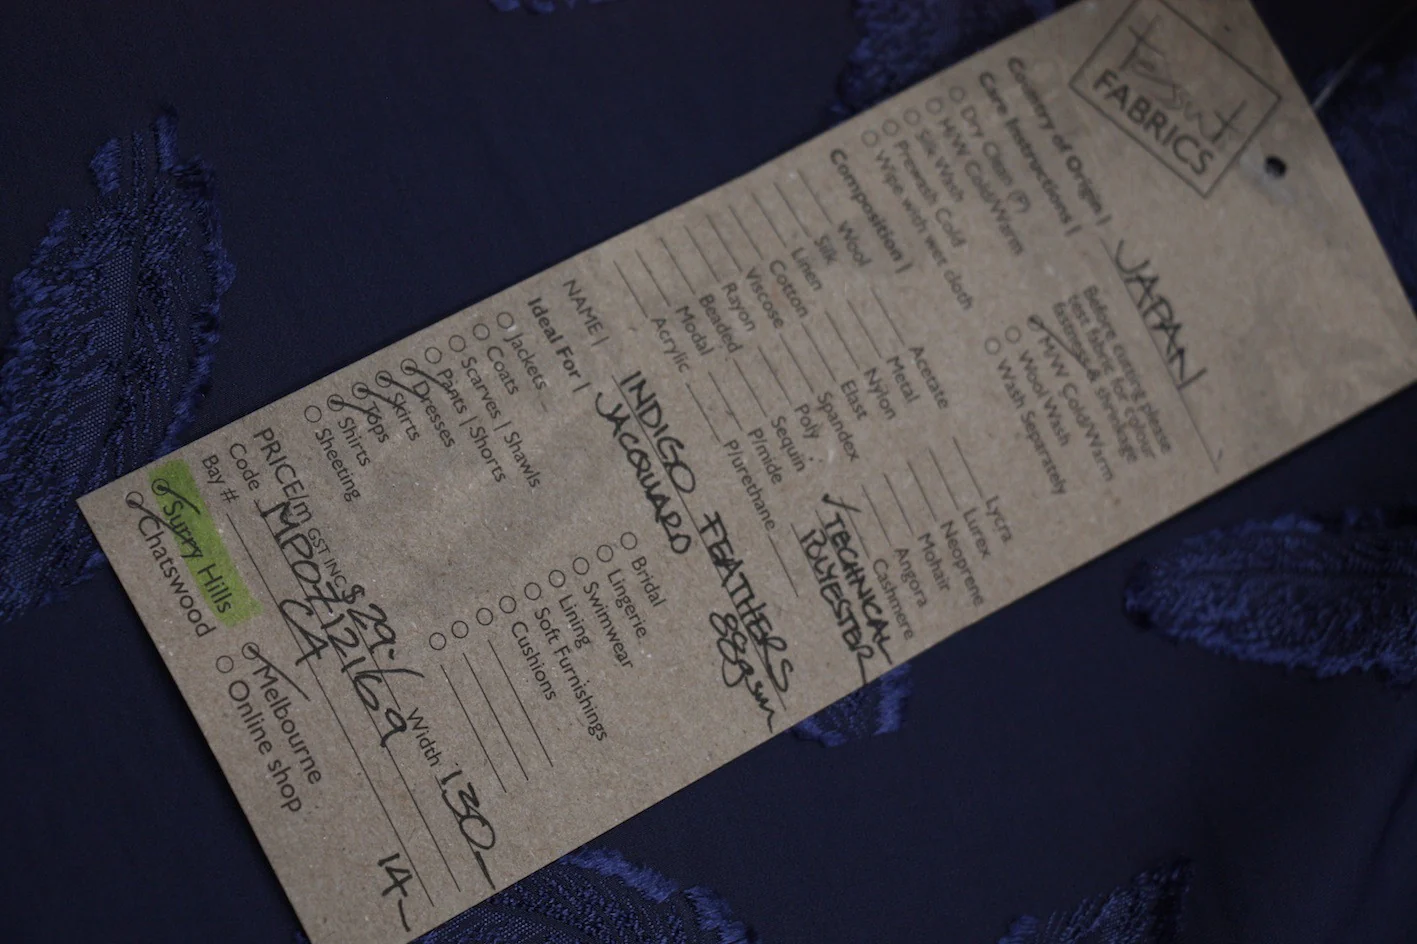 tessuti
FABRICS
Country of Origin | JAPAN
Care Instructions |
Before cutting please
test fabric for colour
fastness & shrinkage
Dry Clean (P)
H/W Cold/Warm
Silk Wash
Prewash Cold
Wipe with wet cloth
M/W Cold/Warm
Wool Wash
Wash Separately
Composition |
Wool
Silk
Linen
Cotton
Viscose
Rayon
Beaded
Modal
Acrylic
Acetate
Metal
Nylon
Elast
Spandex
Poly
Sequin
P/mide
P/urethane
Lycra
Lurex
Neoprene
Mohair
Angora
Cashmere
TECHNICAL
POLYESTER
NAME | INDIGO FEATHERS
JACQUARD 88gsm
Ideal For |
Jackets
Coats
Scarves | Shawls
Pants | Shorts
Dresses
Skirts
Tops
Shirts
Sheeting
Bridal
Lingerie
Swimwear
Lining
Soft Furnishings
Cushions
PRICE/m GST INC $29- Width 130
Code MP0712169
Bay # CA 14
Surry Hills
Chatswood
Melbourne
Online shop